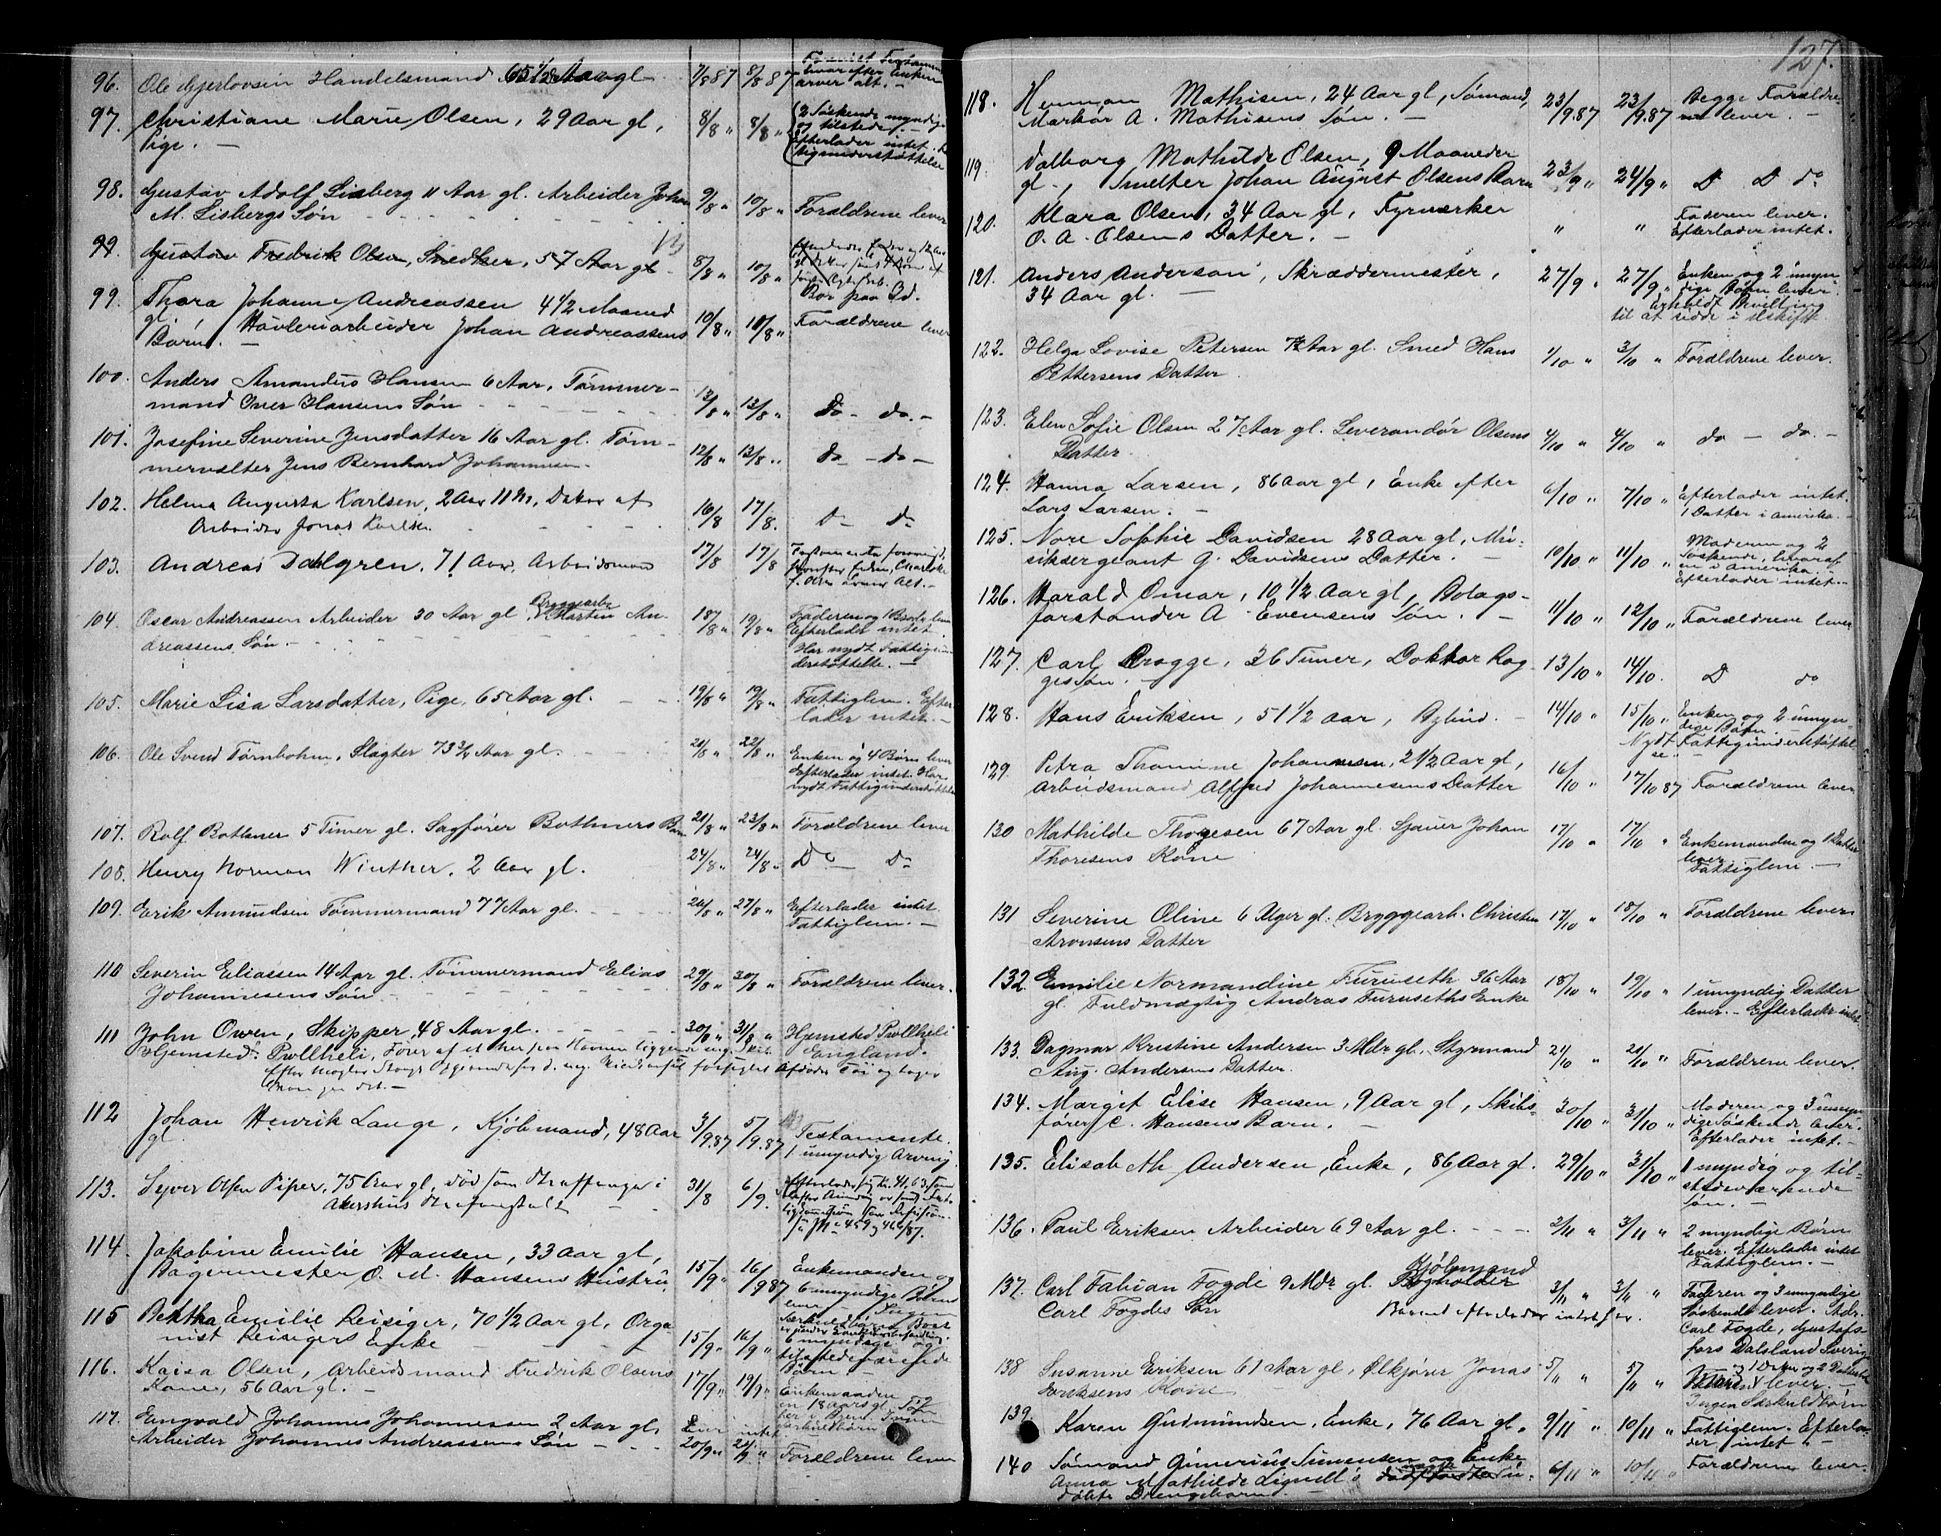 127.
96. Ole Gjerlovsen Handelsmand 65 1/2 Aar gl 7/8 87 8/8 87
arver alt. –
97. Christiane Marie Olsen, 29 Aar gl, 8/8 " 8/8 " 2 Søskende myndige
Pige. – og tilstede. –
Efterlader intet.
98. Gustav Adolf Lisberg 11 Aar gl. Arbeider Johan 9/8 " 10/8 " Forældrene lever
M. Lisbergs Søn
99. Gustav Fredrik Olsen, Snedker, 57 Aar gl 8/8 " 10/8 "
Bor paa
99. Thora Johanne Andreassen 4 1/2 Maaned 10/8 " 10/8 " Forældrene lever
gl. Høvleriarbeider Johan Andreassens
Barn. –
100. Anders Amandus Hansen 6 Aar, Tømmer- 12/8 " 13/8 " Do – do. –
mand Iver Hansens Søn
101. Josefine Severine Jensdatter 16 Aar gl. Tøm- 12/8 " 13/8 " do – do –
mervælter Jens Bernhard Johannesen.
102. Helma Augusta Karlsen, 2 Aar 11 M, Datter af 16/8 17/8. Do Do
Arbeider Jonas Karlsen
103. Andreas Dahlgren, 71 Aar, Arbeidsmand 17/8 17/8
104. Oscar Andreassen Arbeider 30 Aar gl Bryggearb. Martin An- 18/8 " 19/8 " Faderen og 1 Broder lever
dreassens Søn. – Efterlader intet.
Har nydt Fattigun-
derstøttelse. –
105. Marie Lisa Larsdatter, Pige, 65 Aar gl. 19/8 " 19/8 " Fattiglem. Efter-
lader intet. –
106. Ole Svend Tørnbohm, Slagter 73 3/4 Aar gl. 21/8 " 22/8 " Enken og 4 Børn lever
Efterlader intet. Har
nydt Fattigunderstøttelse
107. Rolf Bothner 5 Timer gl. Sagfører Bothners Barn 21/8 " 23/8 " Forældrene lever
108. Henry Norman Winther, 2 Aar gl. 24/8 " 24/8 " Do Do
109. Erik Amundsen Tømmermand 77 Aar gl. 26/8 " 27/8 " Efterlader intet.
Fattiglem. –
110 Severin Eliassen 14 Aar gl. Tømmermand Elias 29/8 " 30/8 " Forældrene lever.
Johannesens Søn
111 John Owen, Skipper 48 Aar gl. 30/8 " 31/8 " Hjemsted Pwllheli
Hjemsted: Pwllheli, Fører af et her paa Havnen liggende eng. Skib England.
112 Johan Henrik Lange, Kjøbmand, 48 Aar 3/9.87 5/9.87 Testamente.
gl 1 umyndig Arving.
113. Syver Olsen Piper, 75 Aar gl, død som Straffange i 31/8 6/9.
Akershus Strafanstalt
114. Jakobine Emilie Hansen, 33 Aar gl, 15/9 " 16/9 87 Enkemanden og
Bagermester O. M. Hansens Hustru 6 umyndige Børn
lever – Ingen
115 Bertha Emilie Reisiger, 70 1/2 Aar gl, Orga- 15/9 " 16/9 " 6 myndige og
nist Reisigers Enke tilstedeværende
Børn –
116. Kaisa Olsen, Arbeidsmand Fredrik Olsens 17/9 " 19/9 " Enkemanden
Kone, 56 Aar gl. –
117. Engvald Johannes Johannessen 2 Aar gl,
Arbeider Johannes Andreassens Søn 20/9 " Forældrene lever
118. Herman Mathisen, 24 Aar gl, Sømand, 23/9.87 23/9.87 Begge Forældre-
Markør A. Mathisens Søn. – ne lever. –
119. Valborg Mathilde Olsen, 9 Maaneder 23/9 " 24/9 " D D do
gl., Smelter Johan August Olsens Barn
120. Klara Olsen, 34 Aar gl, Fyrværker " " Faderen lever.
O. A. Olsens Datter. – Efterlader intet.
121. Anders Anderson, Skræddermester, 27/9 " 27/9 " Enken og 2 umyn-
34 Aar gl. – dige Børn lever.
Erholdt Bevilling
til at sidde i uskift.
122. Helga Lovise Petersen 7 Aar gl. Smed Hans 1/10 " 3/10 " Forældrene lever.
Pettersens Datter.
123. Elen Sofie Olsen 27 Aar gl. Leverandør Olsens 4/10 " 4/10 " do – do. –
Datter.
124. Hanna Larsen, 86 Aar gl, Enke efter 6/10 " 7/10 " Efterlader intet.
Lars Larsen. – 1 Datter i Amerika. –
125. Nore Sophie Davidsen 28 Aar gl, Mu- 10/10 " 11/10 " Moderen og 2
siksergeant G. Davidsens Datter. – Søskende, hvoraf
en i Amerika. –
Efterlader intet. –
126. Harald Omar, 10 1/2 Aar gl, Bolags- 11/10 " 12/10 " Forældrene lever
forstander A Evensens Søn. –
127. Carl Rogge, 36 Timer, Doktor Rog- 13/10 " 14/10. D do
ges Søn. –
128. Hans Eriksen, 51 1/2 Aar, Bybud. – 14/10 " 15/10 " Enken og 2 umyn-
dige Børn.
Nydt Fattigunderstøttel-
se. –
129. Petra Thomine Johannesen, 2 1/2 Aar gl, 16/10 " 17/10 87 Forældrene lever
Arbeidsmand Alfred Johannesens Datter
130 Mathilde Thoresen 67 Aar gl. Sjauer Johan 17/10 " 17/10 " Enkemanden og 1 Datter
Thoresens Kone lever.
Fattiglem –
131 Severine Oline 6 Uger gl. Bryggearb. Christian 17/10 " 18/10 " Forældrene lever
Aronsens Datter
132. Emilie Normandine Furuseth 36 Aar 18/10 " 19/10 " 1 umyndig Datter
gl. Fuldmægtig Andreas Furuseths Enke lever. – Efterlader intet
133. Dagmar Kristine Andersen 3 Mdr gl. Styrmand 21/10 " 21/10 " Forældrene lever.
Aug. Andersens Datter.
134. Margit Elise Hansen, 9 Aar gl, Skibs- 30/10 " 31/10 " Moderen og 3 umyn-
fører C. Hansens Barn. – dige Søskende lever.
Efterlader intet. –
135. Elisabeth Andersen, Enke, 86 Aar gl. 29/10 " 31/10 " 1 myndig og til-
stedeværende
Søn. –
136. Paul Eriksen Arbeider 69 Aar gl. 2/11 " 3/11 " 2 myndige Børn
lever. Efterlader intet
Fattiglem. –
137. Carl Fabian Fogde 9 Mdr gl. Kjøbmand Bogholder 3/11 " 3/11 " Faderen og 3 umyndige
Carl Fogdes Søn Barnet efterlader intet her. Søskende lever. Adr.
Carl Fogde, Gustafs-
fors Dalsland Sverig
138 Susanne Eriksen 61 Aar gl, Ølkjører Jonas 5/11 " 5/11 " lever. –
Eriksens Kone Ingen Særkuldbørn
139. Karen Gudmundsen, Enke, 76 Aar gl. 9/11 " 10/11 " Fattiglem. Efterla-
der intet. –
140 Sømand Gunerius Simensen og Enke 6/11 " 10/11 " Forældrene lever.
Anna Mathilde Lignell's
døbte Drengebarn.